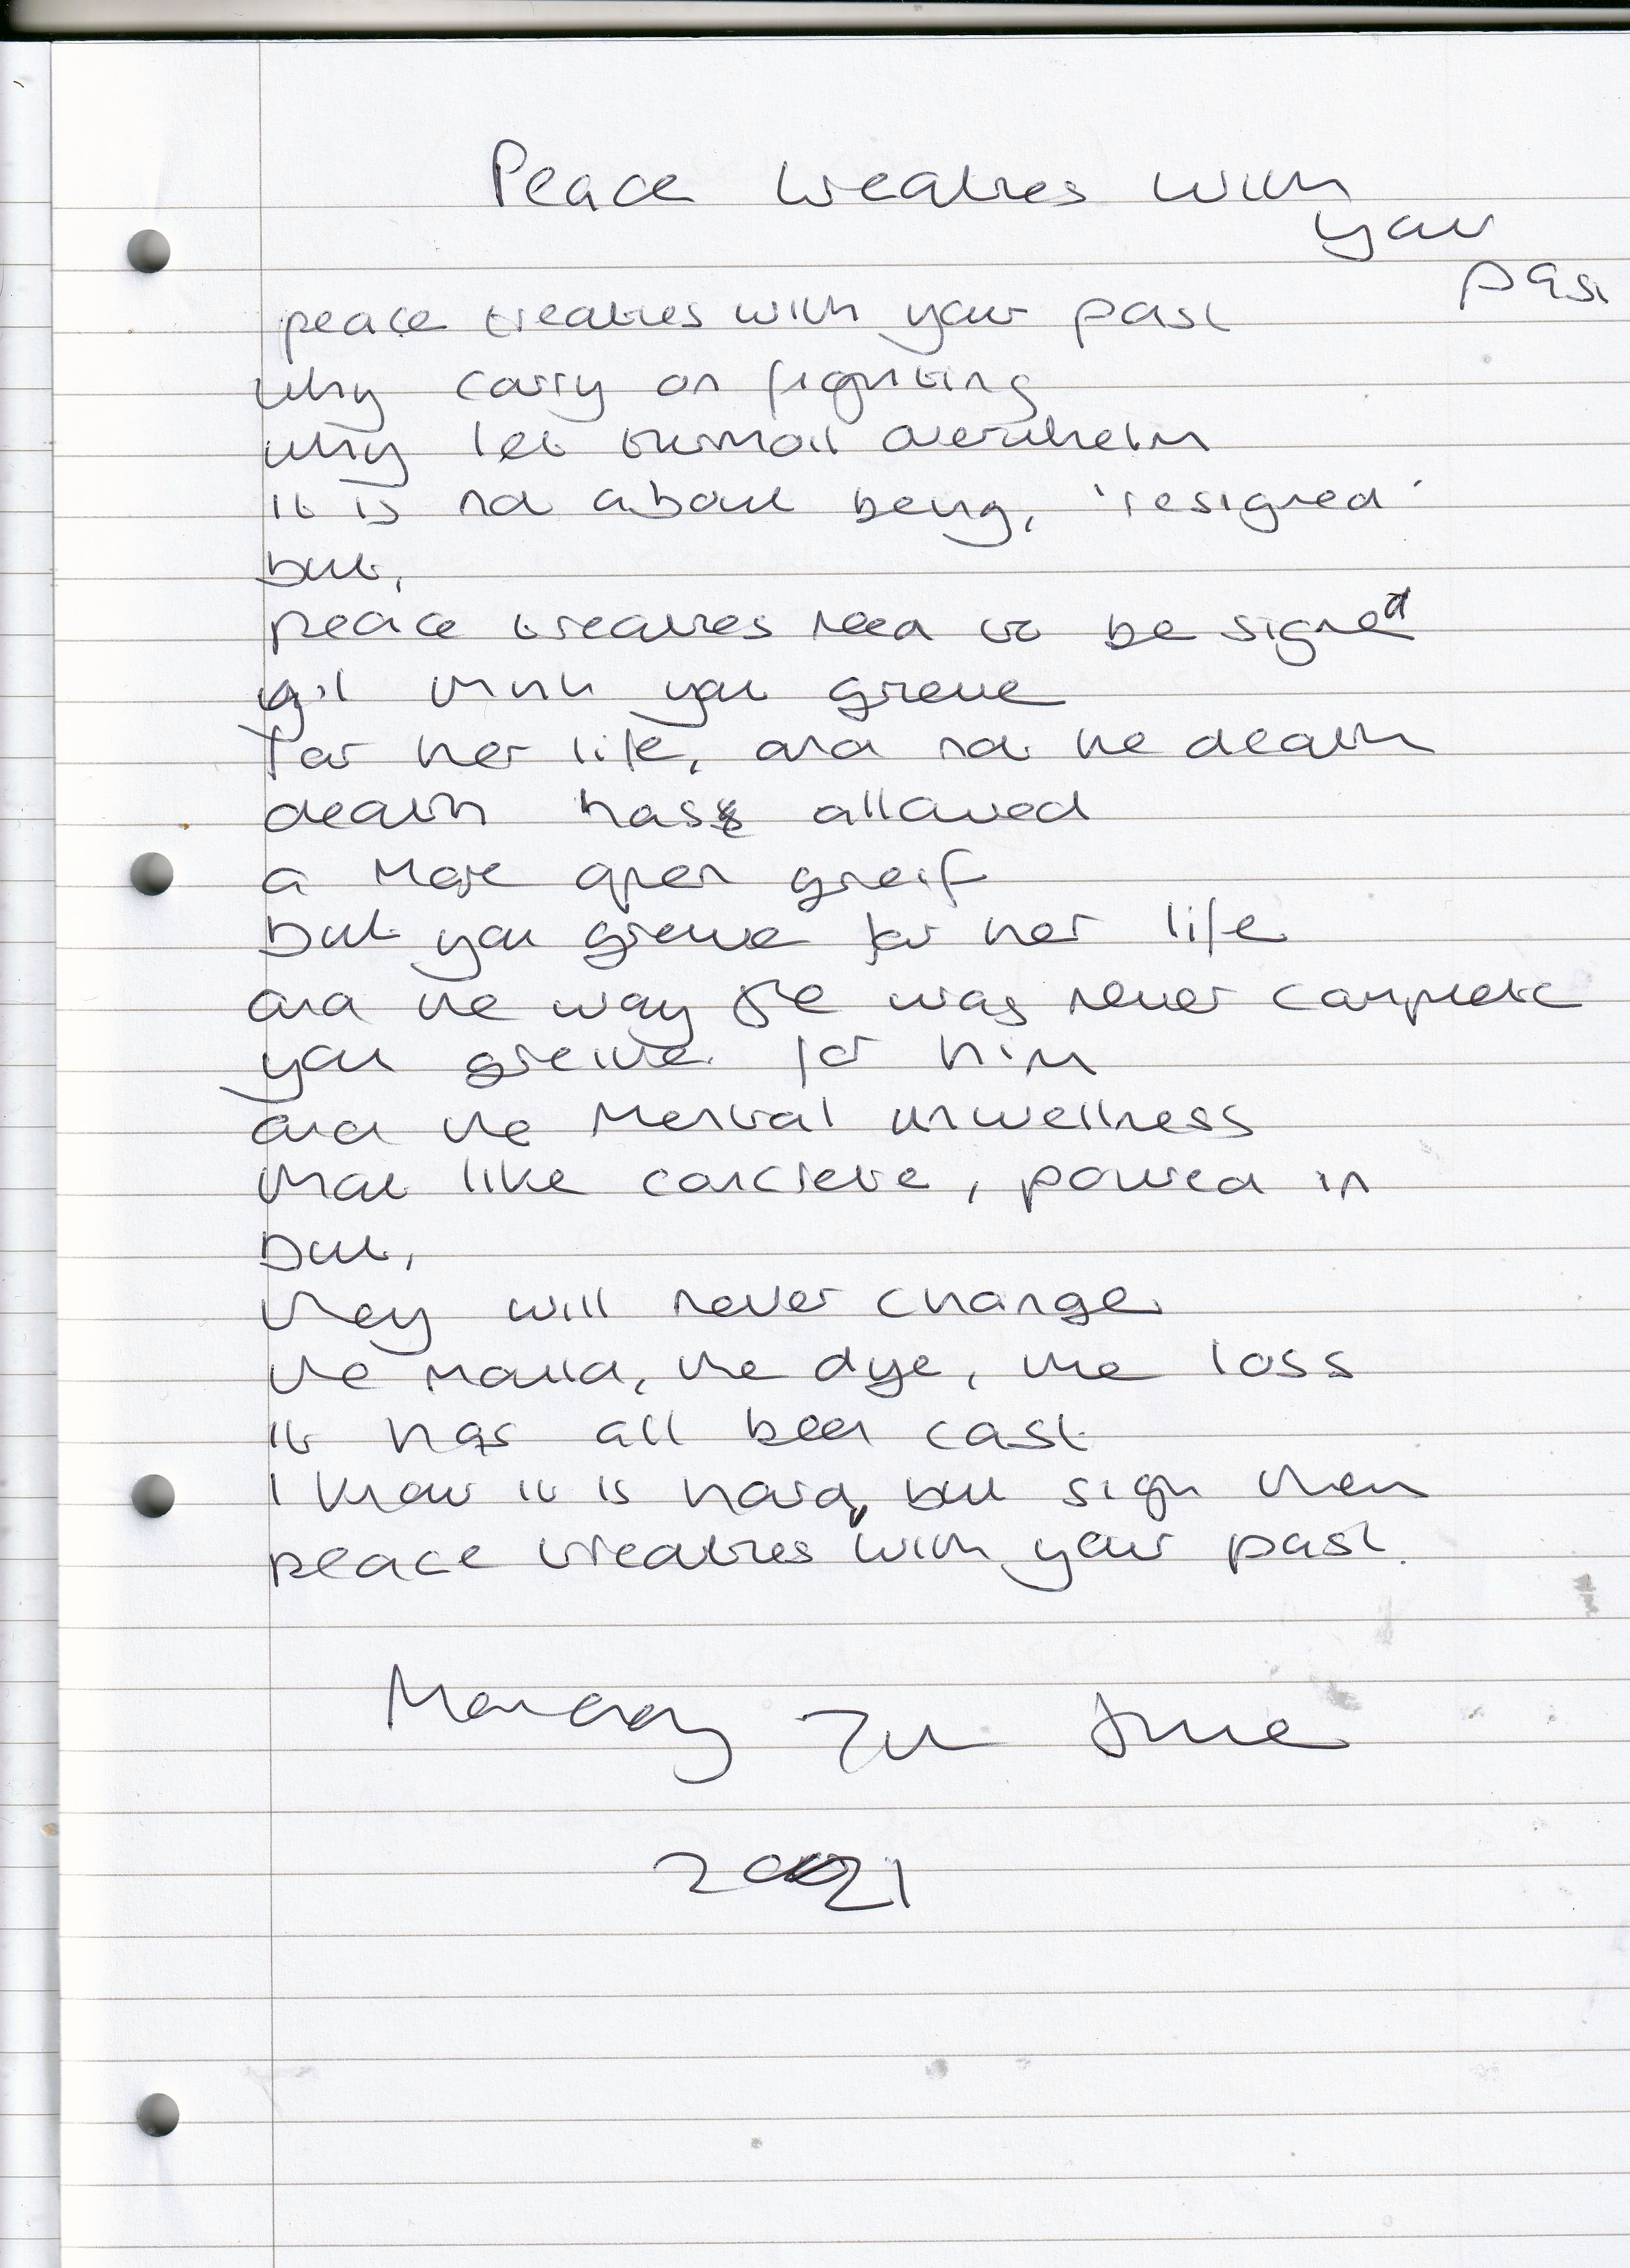 Peace treaties with
your
past
peace treaties with your past
why carry on fighting
why let turmoil overwhelm
it is not about being, 'resigned'
but,
peace treaties need to be signed
I think you grieve
for her life, and not the death
death has allowed
a more open greif
but you grieve for her life
and the way she was never complete
you greive for him
and the mental unwellness
that like concrete, poured in
but,
they will never change
the mould, the dye, the loss
it has all been cast
I know it is hard, but sign them
peace treaties with your past.
Monday 7th June
2021